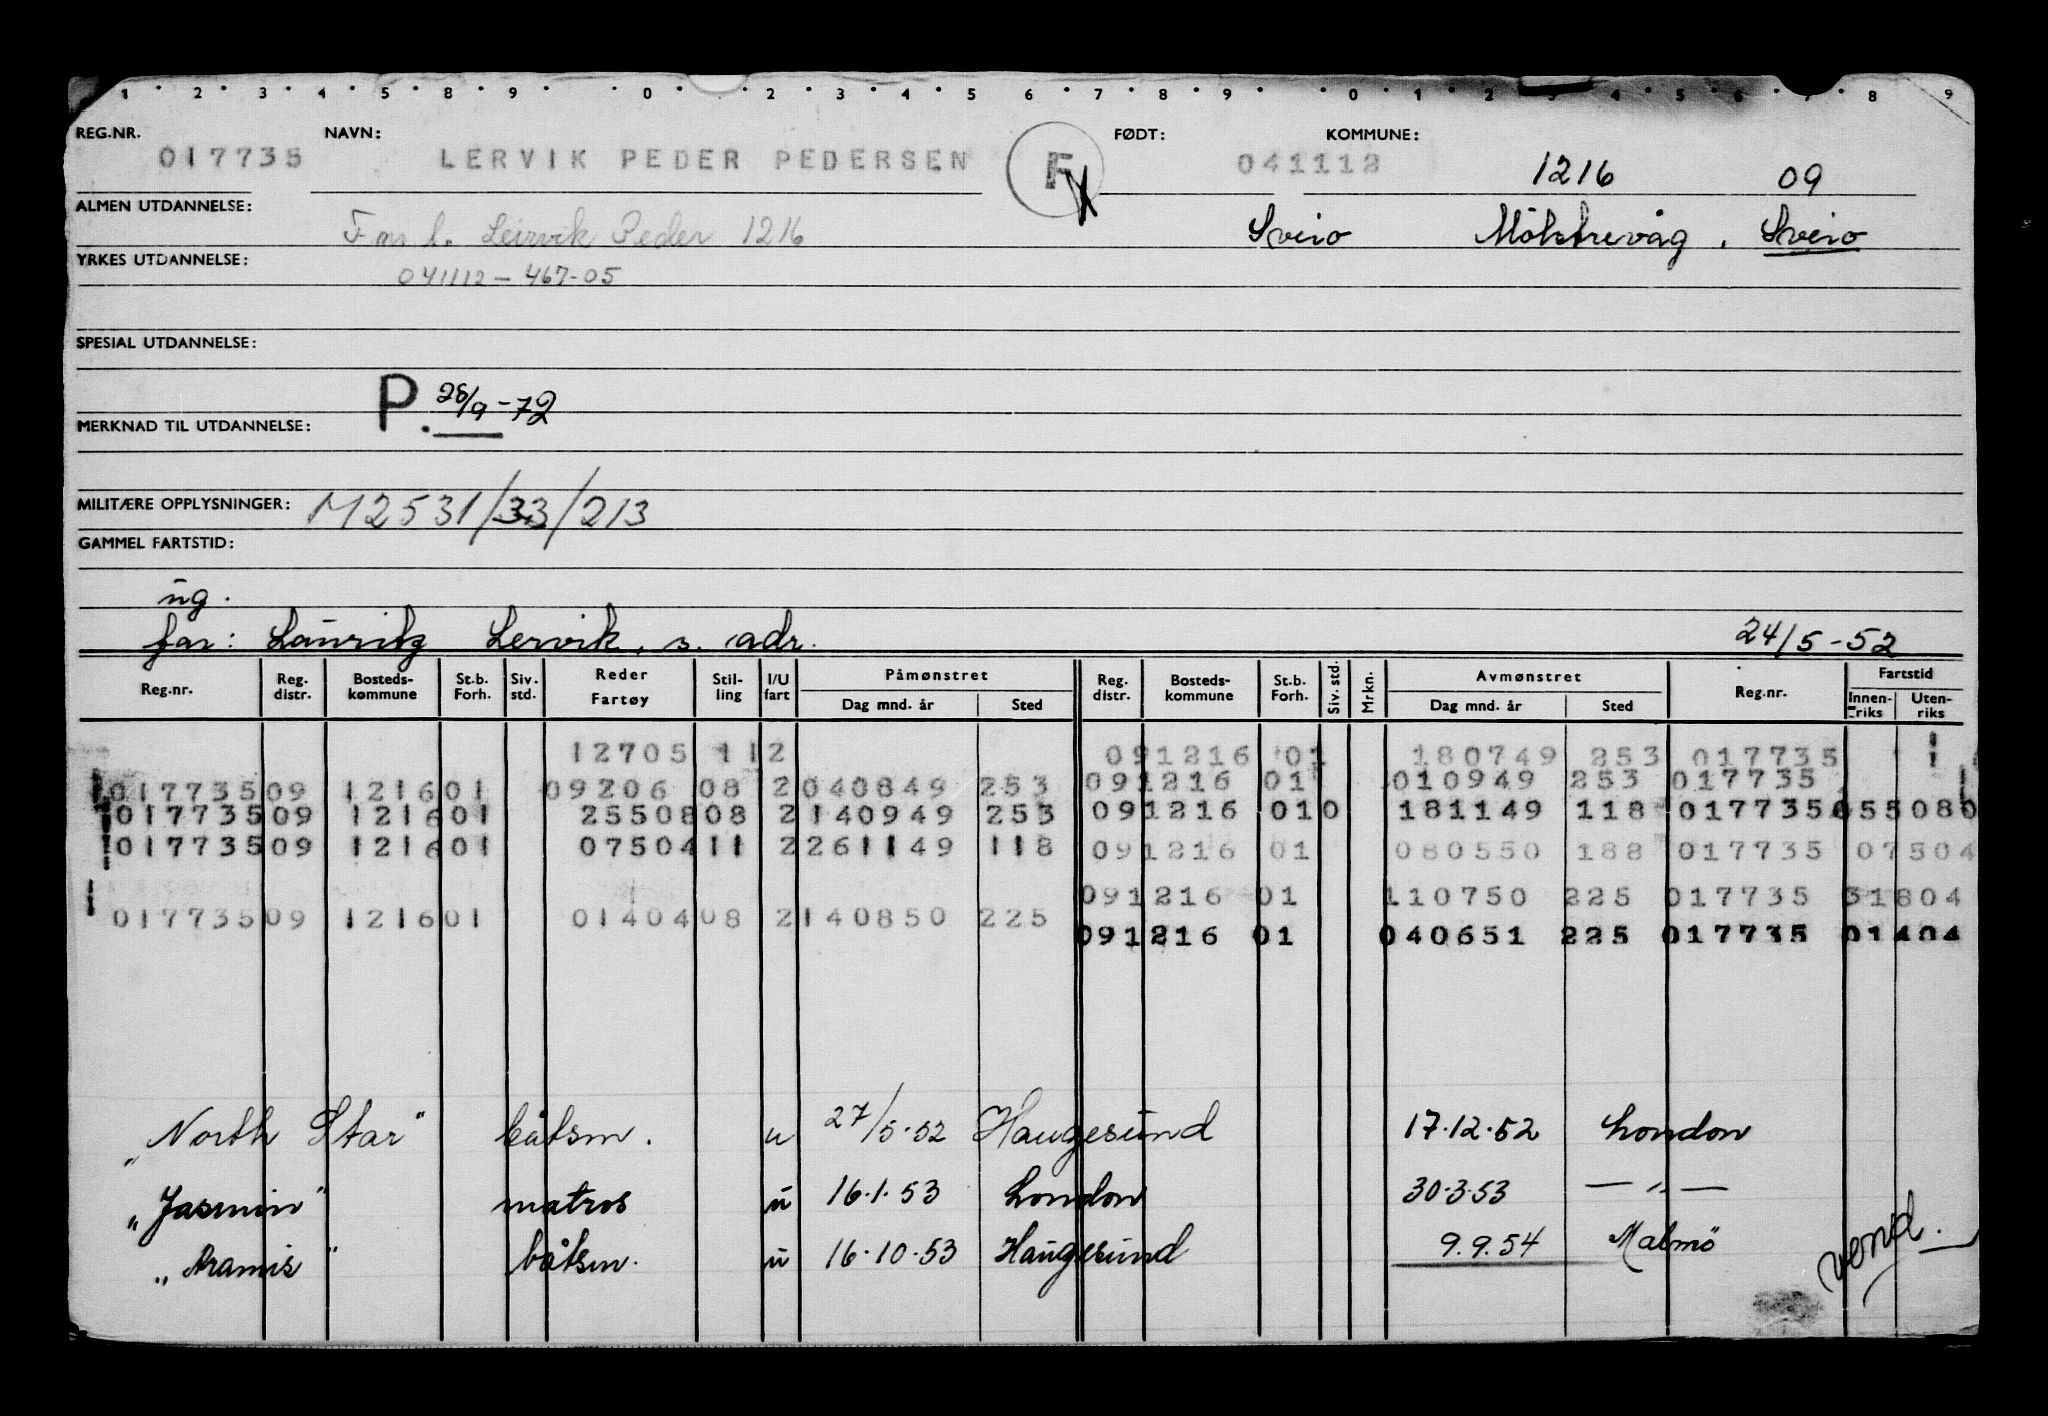 1 2 3 4 5 8 9 0 2 3 4 5 6 7 8 9 0 1 2 3 4 5 6 7 8 9
REG.NR. NAVN: FØDT: KOMMUNE:
017735 LERVIK PEDER PEDERSEN F 041112 1216 09
ALMEN UTDANNELSE:
Leirvik Peder 1216 Sveio Sveio
YRKES UTDANNELSE:
041112 - 467-05
SPESIAL UTDANNELSE:
P. 28/9-72
MERKNAD TIL UTDANNELSE:
MILITÆRE OPPLYSNINGER: M2531/33/213
GAMMEL FARTSTID:
ug.
far: Lauritz Lervik, s. adr. 24/5-52
Reg.nr. Reg. distr. Bosteds-kommune St.b. Forh. Siv. std. Reder Fartøy Stil-ling I/U fart Påmønstret Dag mnd. år Sted Reg. distr. Bosteds-kommune St.b. Forh. Siv. std. Mrkn. Avmønstret Dag mnd. år Sted Reg.nr. Fartstid Innen-riks Uten-riks
12705 112 091216 01 180749 253 017735
017735 09 1216 01 09206 08 2 040849 253 091216 01 010949 253 017735
017735 09 1216 01 25508 08 2 140949 253 091216 01 0 181149 118 017735 055080
017735 09 1216 01 07504 11 2 261149 118 091216 01 080550 188 017735 07504
091216 01 110750 225 017735 31804
017735 09 1216 01 01404 08 2 140850 225
091216 01 040651 225 017735 01404
„North Star" båtsm. u 27/5-52 Haugesund 17.12.52 London
„Jasmin" matros u 16.1.53 London 30.3.53 — „ —
„Aramis" båtsm. u 16.10.53 Haugesund 9.9.54 Malmö
vend.